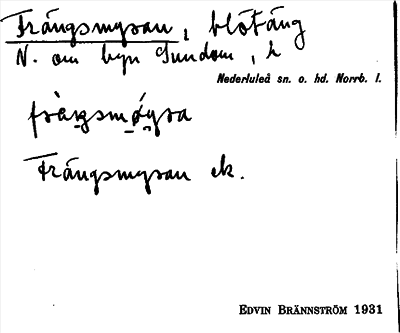 Trångsmyran, blötäng
N. om byn Sundom, h
Nederluleå sn. o. hd. Norrb. l.
Trångsmyran ek.
EDVIN BRÄNNSTRÖM 1931